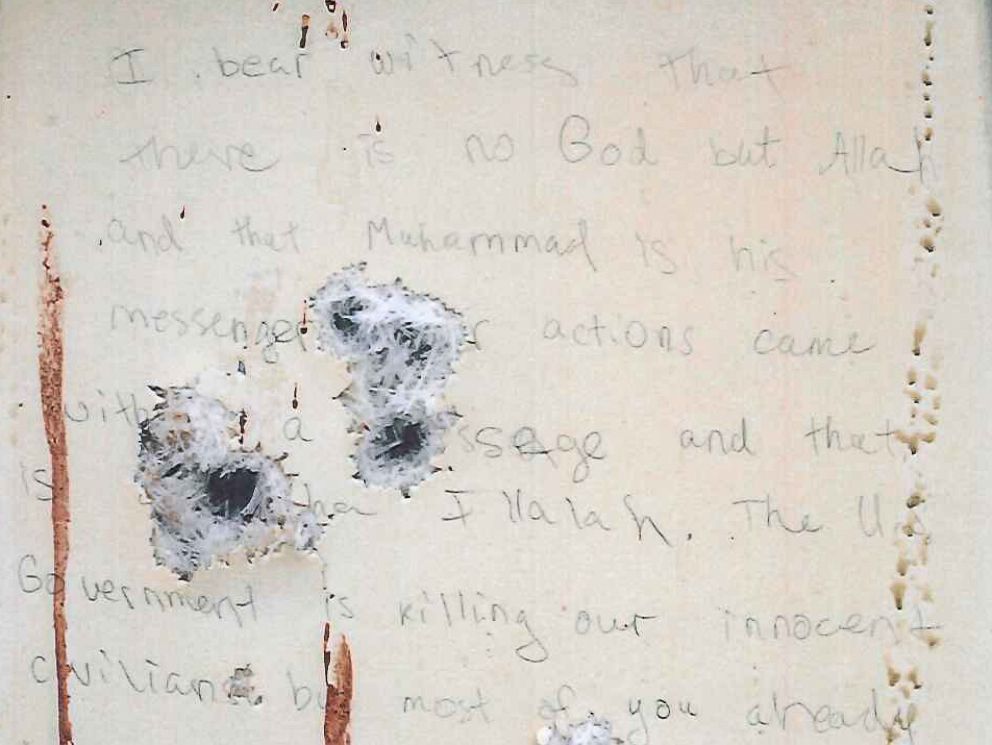 I bear witness that
there is no God but Allah
and that Muhammad is his
messenger actions came
with a ssage and that
is Illalah. The U.S
Government is killing our innocent
civilians but most of you already